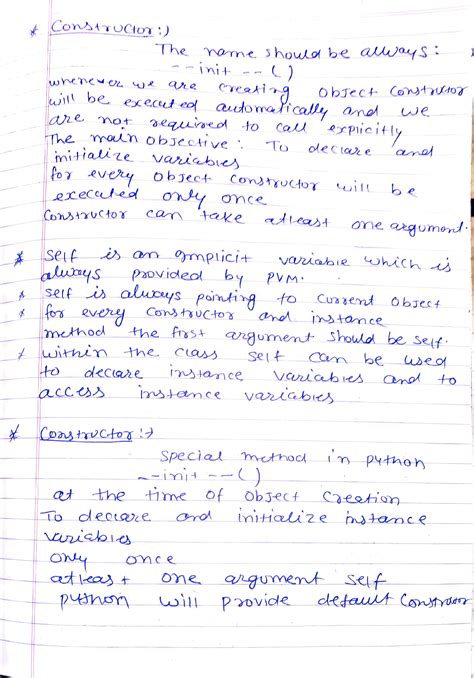 * Constructor :)
The name should be always :
--init--()
whenever we are creating object constructor
will be executed automatically and we
are not required to call explicitly
The main objective : To declare and
initialize variables
for every object constructor will be
executed only once
Constructor can take atleast one argument.
* self is an implicit variable which is
always provided by PVM.
* self is always pointing to current object
* for every constructor and instance
method the first argument should be self.
* within the class self can be used
to declare instance variables and to
access instance variables
* Constructor :→
special method in python
--init--()
at the time of object creation
To declare and initialize instance
variables
only once
atleast one argument self
python will provide default constructor